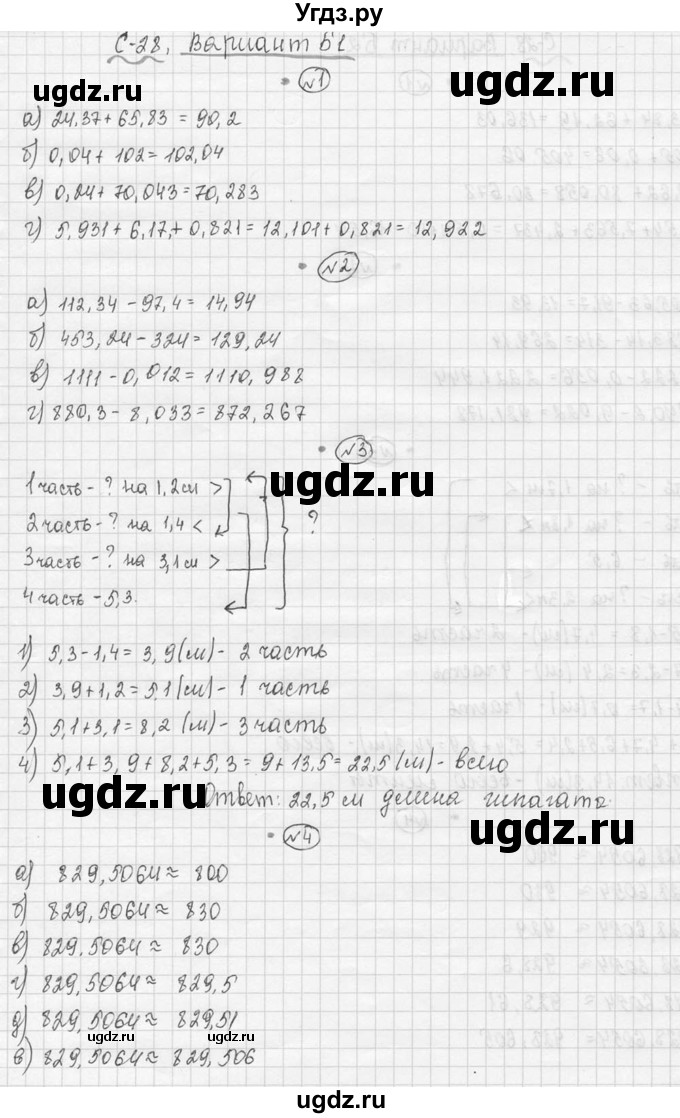 Угдз.ру
С-28, Вариант Б1
№1
а) 24,37 + 65,83 = 90,2
б) 0,04 + 102 = 102,04
в) 0,24 + 70,043 = 70,283
г) 5,931 + 6,17, + 0,821 = 12,101 + 0,821 = 12,922
№2
а) 112,34 - 97,4 = 14,94
б) 453,24 - 324 = 129,24
в) 1111 - 0,012 = 1110,988
г) 880,3 - 8,033 = 872,267
№3
1 часть - ? на 1,2 см >
2 часть - ? на 1,4 < ?
3 часть - ? на 3,1 см >
4 часть - 5,3.
1) 5,3 - 1,4 = 3,9 (м) - 2 часть
2) 3,9 + 1,2 = 5,1 (м) - 1 часть
3) 5,1 + 3,1 = 8,2 (м) - 3 часть
4) 5,1 + 3,9 + 8,2 + 5,3 = 9 + 13,5 = 22,5 (м) - всего
Ответ: 22,5 м длина шпагата
№4
а) 829,5064 ≈ 800
б) 829,5064 ≈ 830
в) 829,5064 ≈ 830
г) 829,5064 ≈ 829,5
д) 829,5064 ≈ 829,51
е) 829,5064 ≈ 829,506
ugdz.ru
ugdz.ru
ugdz.ru
ugdz.ru
ugdz.ru
ugdz.ru
ugdz.ru
ugdz.ru
ugdz.ru
ugdz.ru
ugdz.ru
ugdz.ru
ugdz.ru